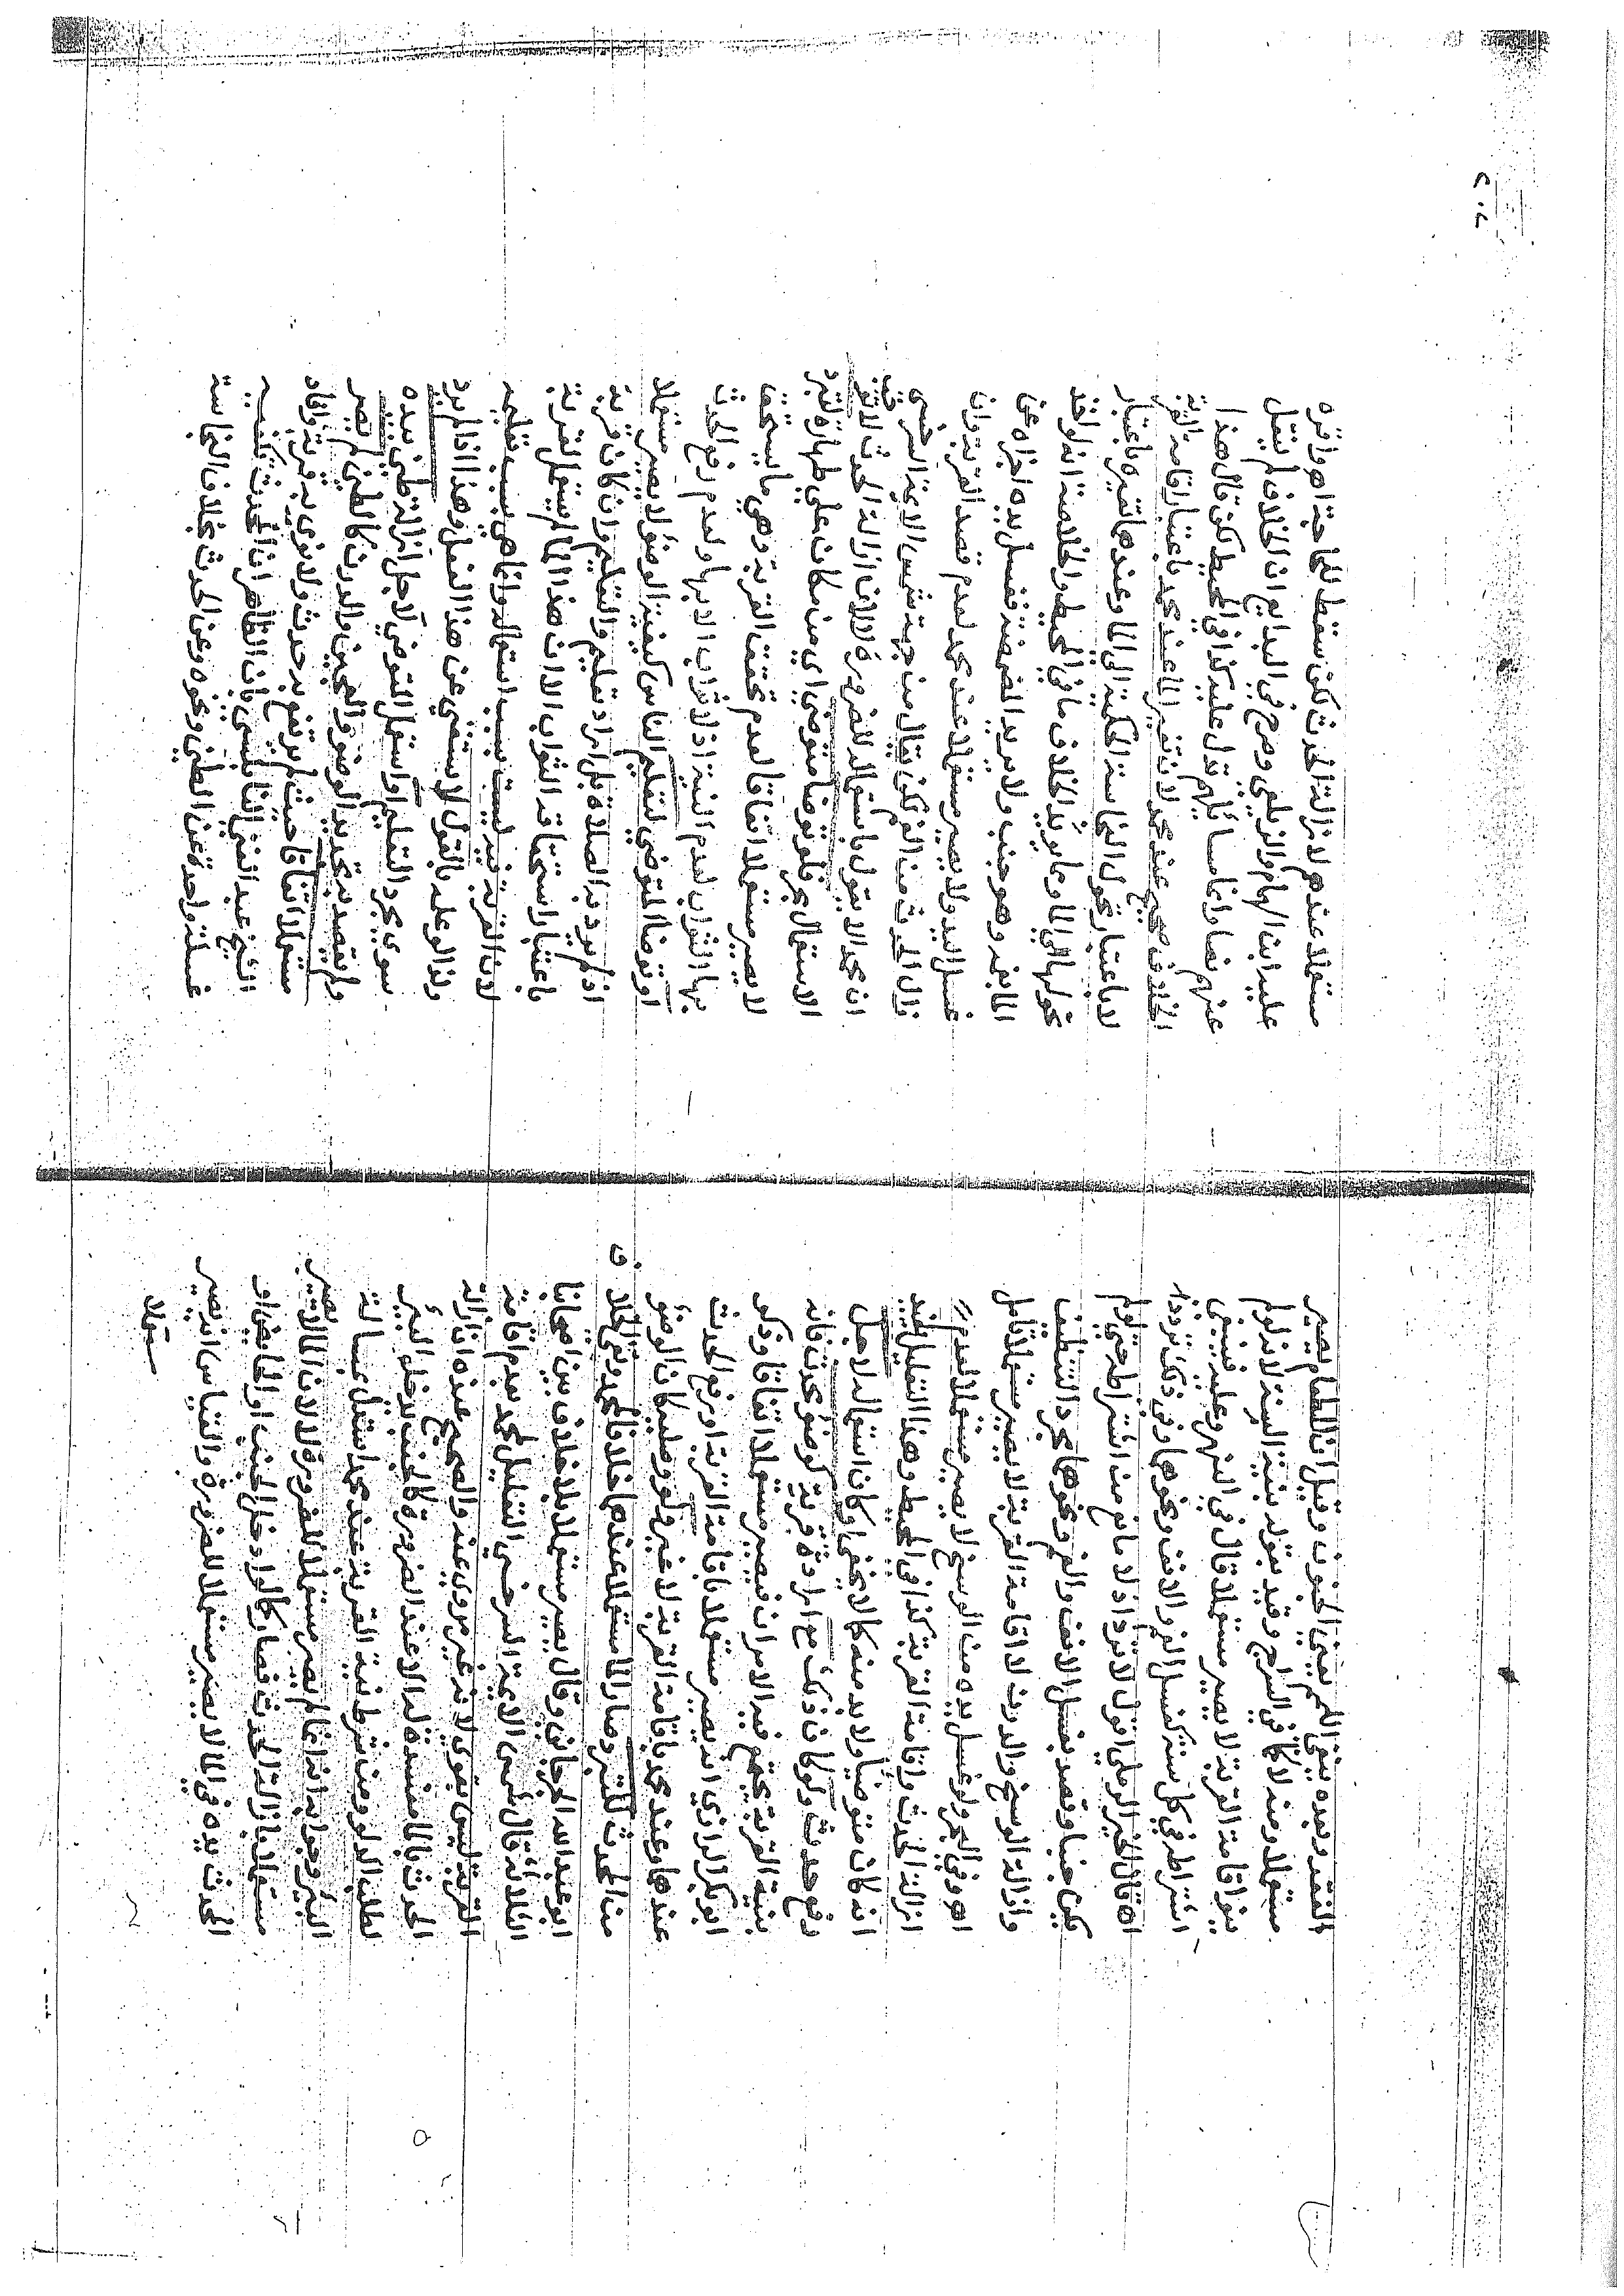 الفقد وبعده ينفي اللمم يعني الجنون وقيل اذا للطعام يصير
مستعملا ومنه لا كما في السراج وقيد بقوله بنية السنة لانه لو لم
ينو اقامة القربة لا يصير مستعملا قال في النهر وعليه فينبغي
اشتراطه في كل سنة كغسل الفم والانف ونحوها وفي ذلك تردد
اه قال الخير الرملي اقول لا تردد اذ لا مانع من اشتراطه حتى لو لم
يكن جنبا وقصد بغسل الانف والفم ونحوها مجرد التنظيف
وازالة الوسخ والدرن لا اقامة القربة لا يصير مستعملا تأمل
اه وفي البحر ولو غسل يده من الوسخ لا يصير مستعملا لعدم
ازالة الحدث واقامة القربة كذا في المحيط وهذا التعليل يفيد
انه كان متوضيأ ولا بد منه كما لا يخفى او كان استعماله لاجل
رفع حدث ولو كان ذلك مع ارادة قربة كوضوء محدث فانه
بنية القربة يجتمع فيه الامران فيصير مستعملا اتفاقا وذكر
ابو بكر الرازي انه يصير مستعملا باقامة القربة او رفع الحدث
عندهما وعند محمد باقامة القربة لا غير الوضوء
من المحدث للتبرد صار الماء مستعملا عندهما خلافا لمحمد ونفي الخلا
ابو عبد الله الجرجاني وقال يصير مستعملا بلا خلاف بين اصحابنا
الثلاثة قال شمس الائمة السرخسي التعليل لمحمد بعدم اقامة
القربة ليس بقوي لانه غير مروي عنه والصحيح عنده ان ازالة
الحدث بالماء مفسدة له الا عند الضرورة كالجنب يدخل البئر
لطلب الدلو ومن شرط نية القربة عند محمد استدل بمسألة
البئر وجوابه انه انما لم يصر مستعملا للضرورة لا لان الماء لا يصير
مستعملا بازالة الحدث فصار كما لو ادخل الجنب او الحائض او
المحدث يده في الماء لا يصير مستعملا للضرورة والقياس انه يصير
مستعملا
مستعملا عندهم لازالة الحدث لكن سقط للحاجة اه واقره
عليه ابن الهمام والزيلعي وصرح في البدايع ان الخلاف لم ينقل
عنهم نصا وانما مسائلهم تدل عليه كذا في المحيط لكن قال هذا
الخلاف صحيح عند محمد لان تغير الماء عند محمد باعتبار اقامة القربة
لا باعتبار تحول النجاسة الحكمية الى الماء وعندهما تغيره باعتبار
تحولها الى الماء ومما يؤيد الخلاف ما في المحيط والخلاصة انه لو اخذ
الماء بفمه وهو جنب ولا يريد المضمضة فغسل يده اجزاه عن
غسل اليد ولا يصير مستعملا عند محمد لعدم قصد القربة وان
زال الحدث من الفم لكن يقال من جهة شمس الائمة السرخسي
ان محمدا لا يقول باستعماله للضرورة لا لان ازالة الحدث لا
الاستعمال بحر فلو توضأ متوضئ اي من كان على طهارة للتبرد
لا يصير مستعملا اتفاقا لعدم تحقق القربة وهي ما يستحق
بها الثواب لعدم النية اذ لا ثواب الا بها ولعدم رفع الحدث
او توضأ المتوضي لتعليم الناس كيفية الوضوء لا يصير مستعملا
اذ لم يرد به الصلاة بل اراد تعليم والتعليم وان كان قربة
باعتبار استحقاقه الثواب الا ان هذا الماء لم يستعمل لقربة
لان القربة فيه ليست بسبب استعماله وانما هي بسبب تعليمه
ولذا لو علمه بالقول لاستغني عن هذا الفعل وهذا اذا لم يرد
سوى مجرد التعليم او استعمل المتوضي لاجل ازالة طين بيده
ولم يقصد به تجديد الوضوء والعجين والدرن كالطين لم يصر
مستعملا اتفاقا حيث لم يرتفع به حدث ولا نوى به قربة وافاد
الشيخ عبد الغني النابلسي بان الظاهر ان المحدث تكفيه
غسلة واحدة عن الطين ونحوه وعن الحدث بخلاف النجاسة